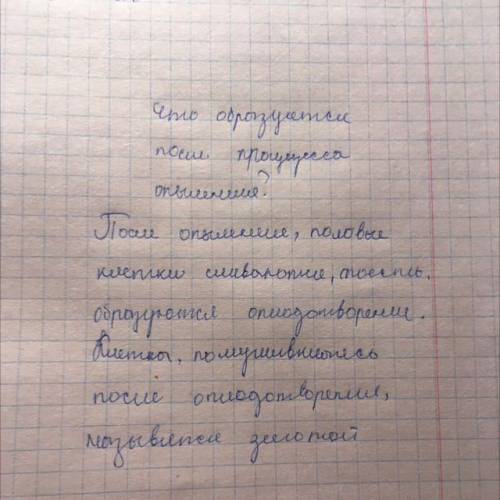 Что образуется
после процесса
опыления?
После опыление, половые
клетки сливаются, тоесть.
образуются оплодотворение.
Клетка, получившиеюсь
после оплодотворения,
называется зиготой